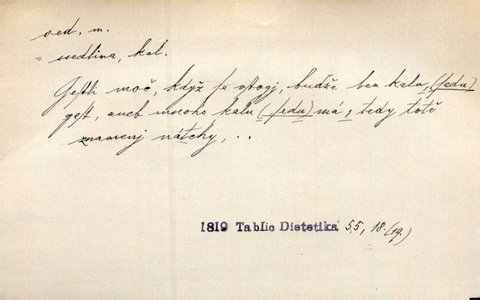 sed, m.
= ssedlina, kal.
Gestli moč, když se vstogj, budže bez kalu, (sedu)
gest, aneb mnoho kalu (sedu) má, tedy totě
znamenj nátchy, ..
1819 Tablic Dietetika 55, 18. (19.)